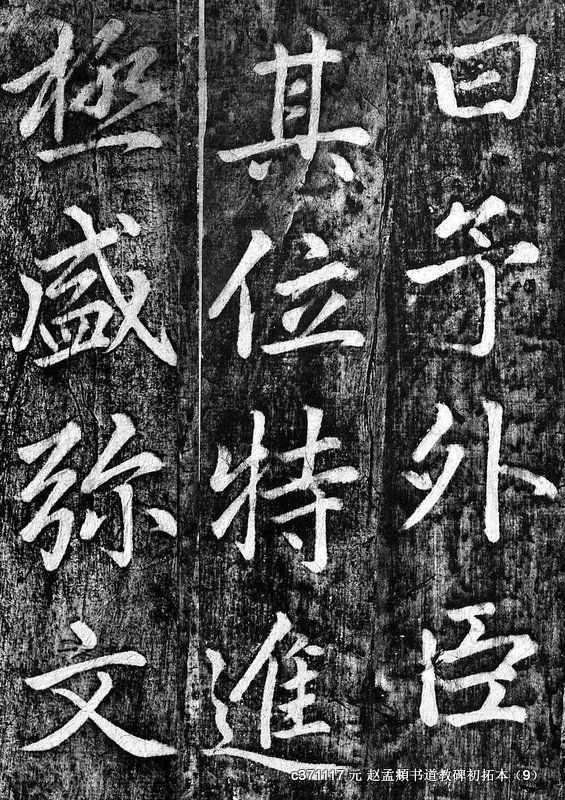 曰予外臣
其位特進
極盛弥文
c371117 元 赵孟頫书道教碑初拓本（9）